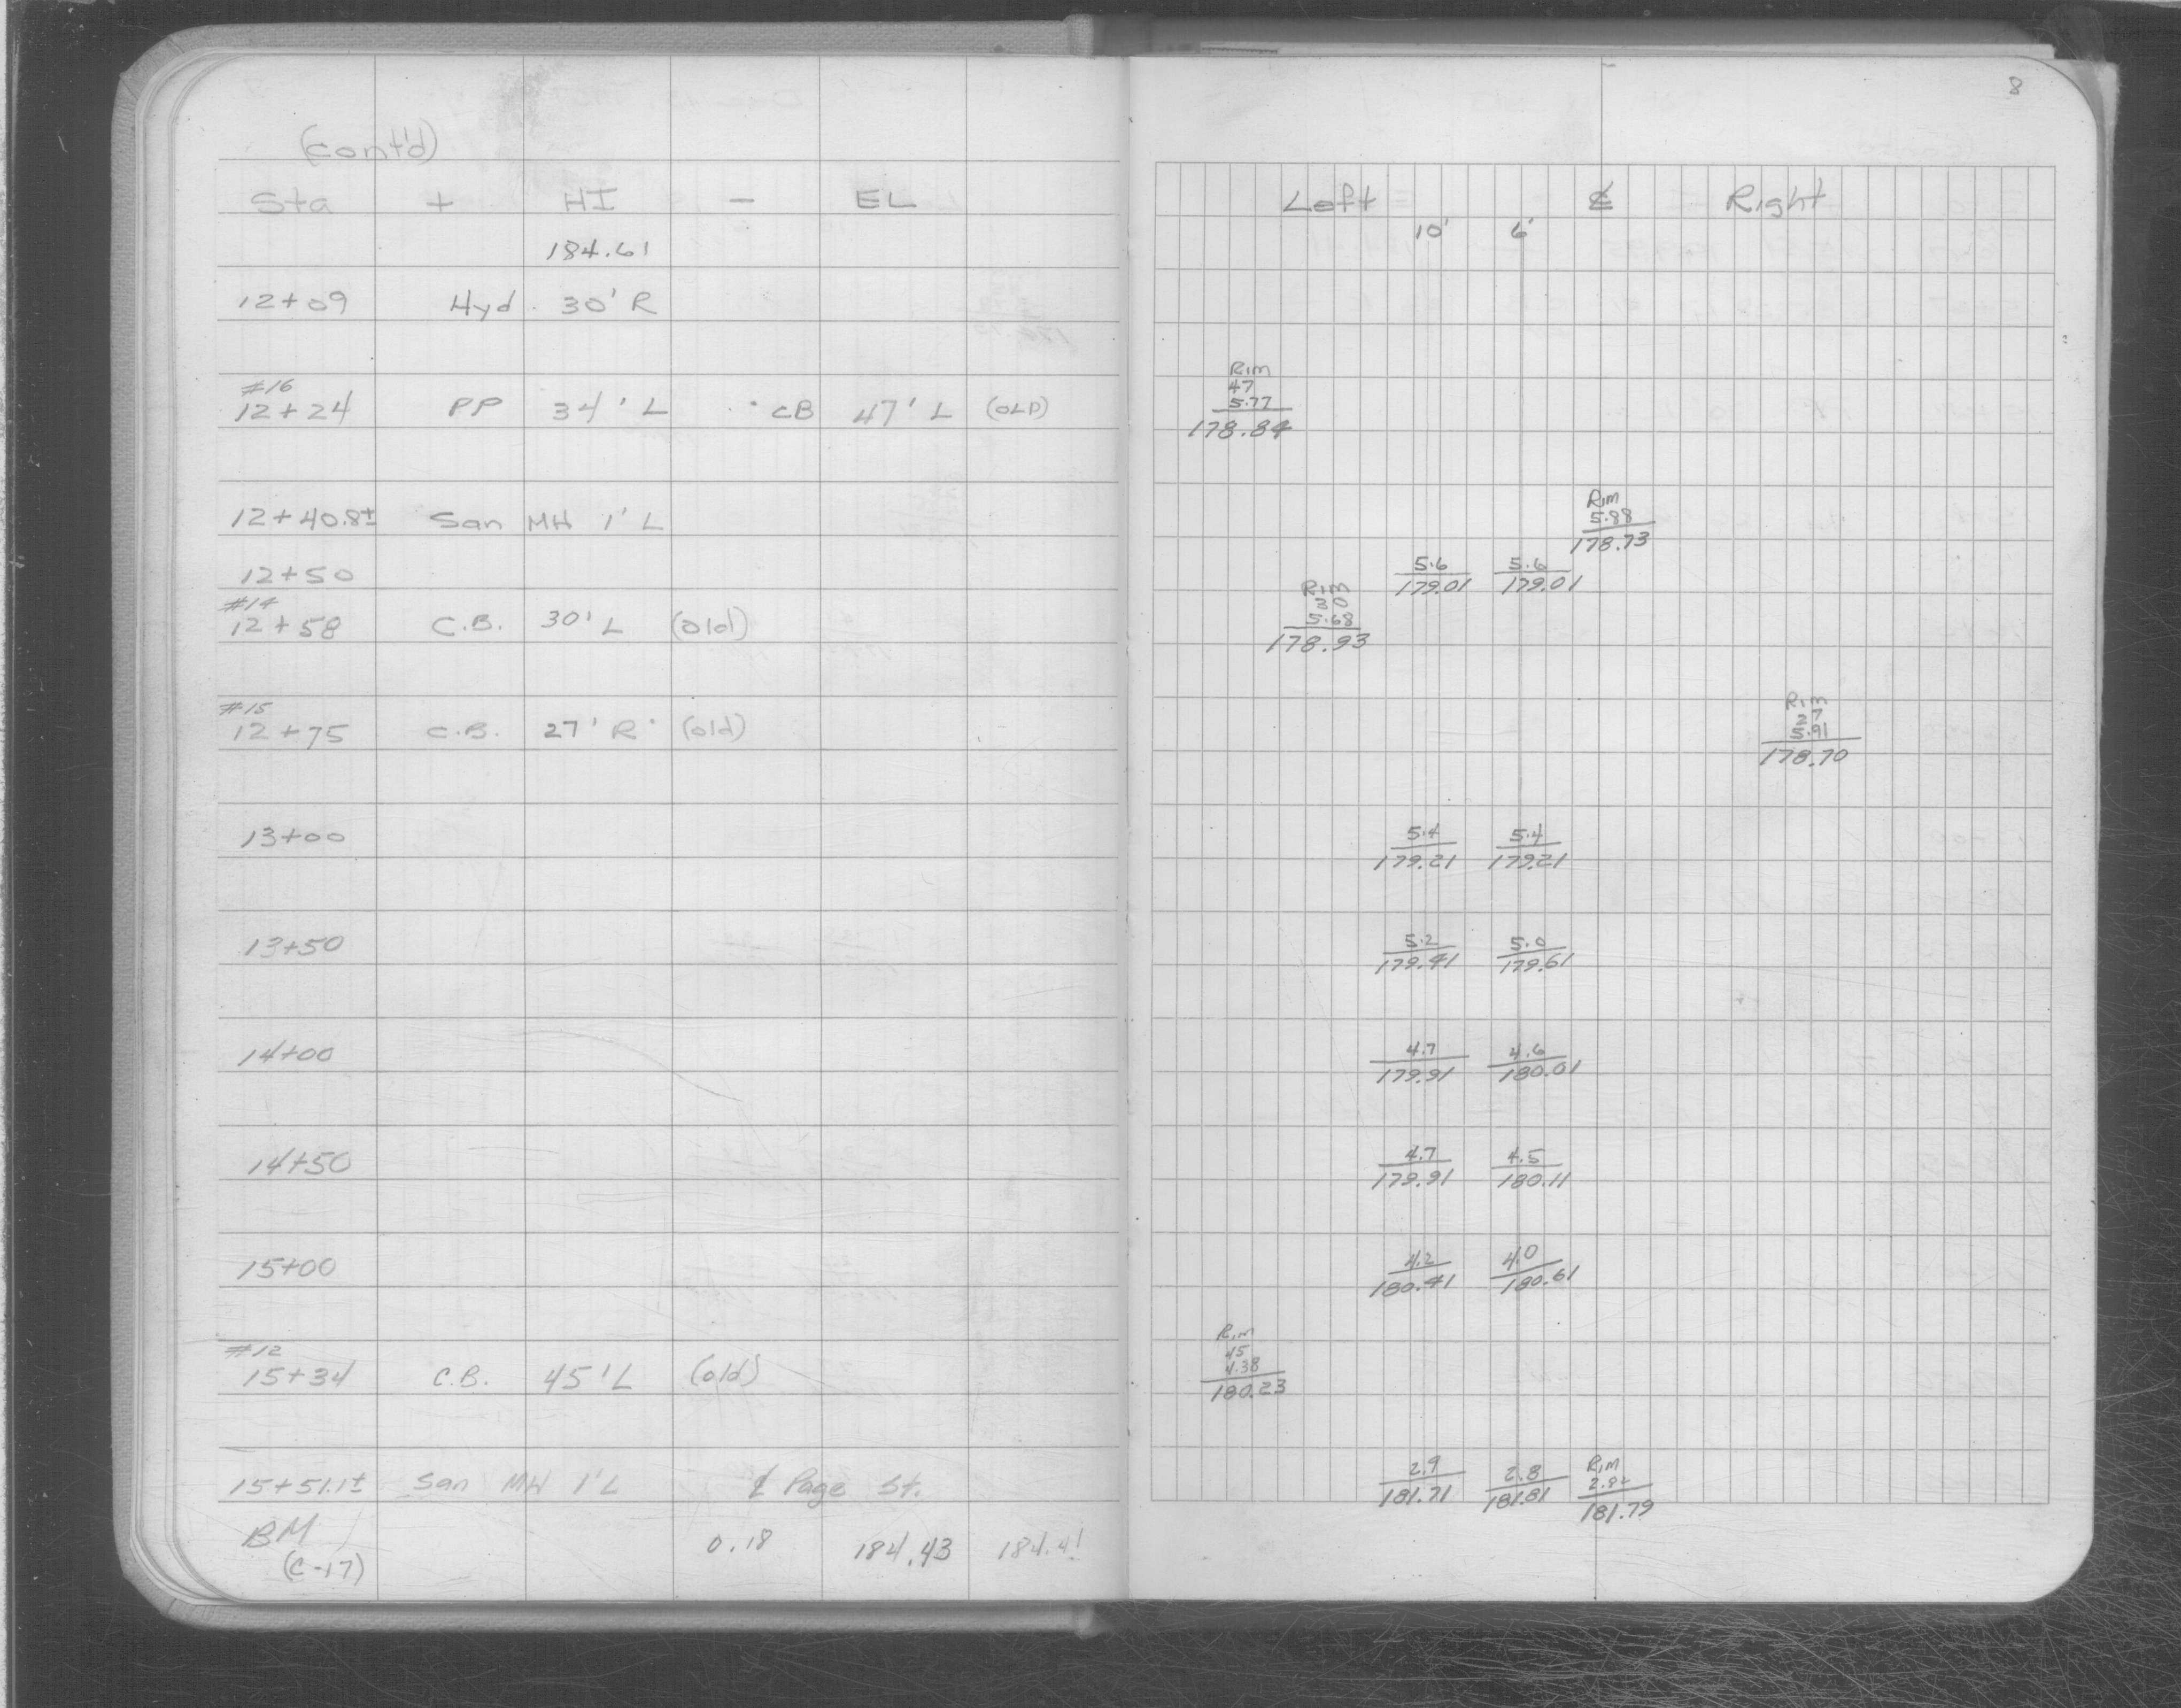 (cont'd)
Sta + HI - EL
184.61
12+09 Hyd. 30' R
#16
12+24 PP 34' L CB 47' L (OLD)
12+40.8± San MH 1' L
12+50
#14
12+58 C.B. 30' L (old)
#15
12+75 C.B. 27' R (old)
13+00
13+50
14+00
14+50
15+00
#12
15+34 C.B. 45' L (old)
15+51.1± San MH 1' L ℄ Page St.
BM 0.18 184.43 184.41
(C-17)
8
Left ℄ Right
10' 6'
Rim
47
5.77
178.84
Rim
5.88
178.73
5.6 5.6
179.01 179.01
Rim
30
5.68
178.93
Rim
27
5.91
178.70
5.4 5.4
179.21 179.21
5.2 5.0
179.41 179.61
4.7 4.6
179.91 180.01
4.7 4.5
179.91 180.11
4.2 4.0
180.41 180.61
Rim
45
4.38
180.23
2.9 2.8 Rim
2.82
181.71 181.81 181.79